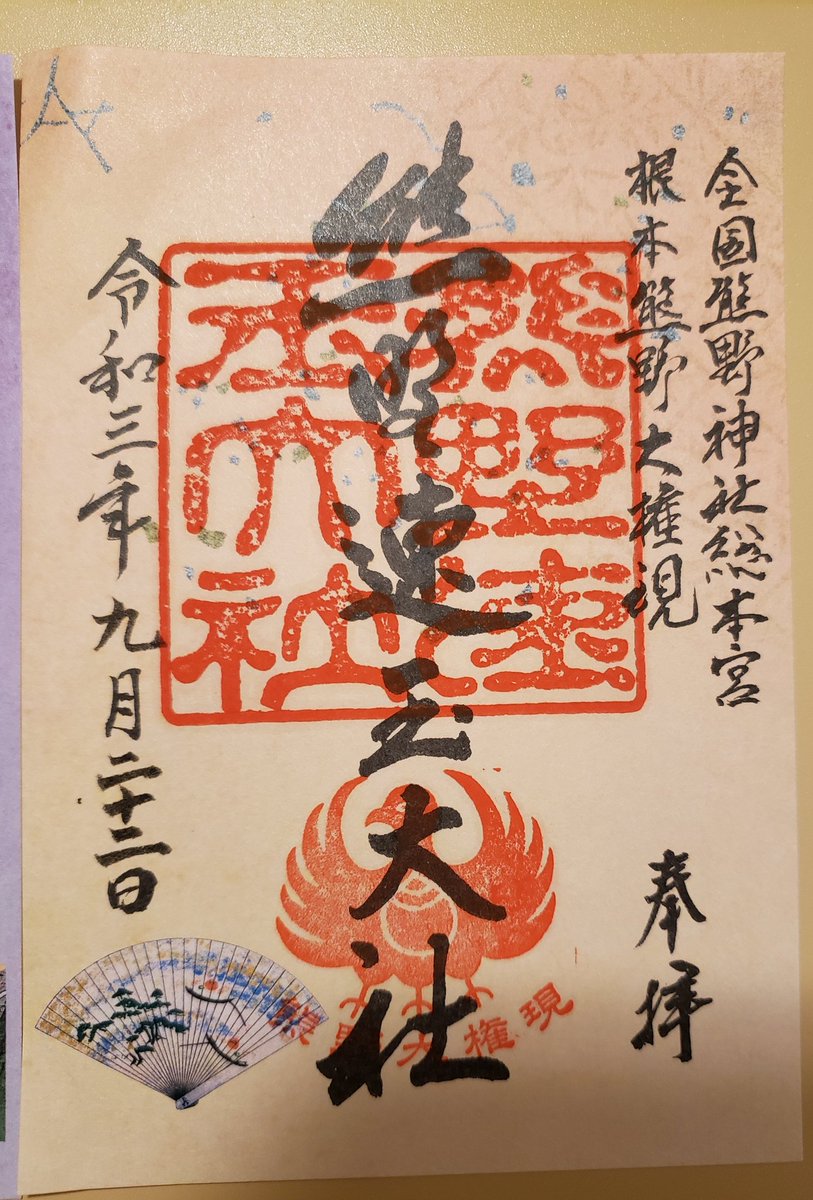 全国熊野神社総本宮
根本熊野大権現
奉拝
熊野速玉大社
熊野速玉大社
熊野大権現
令和三年九月二十二日